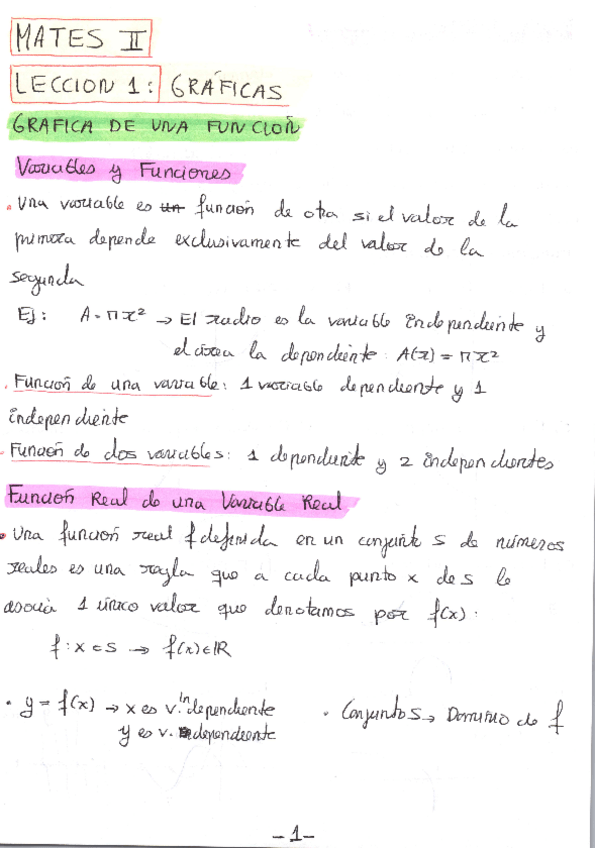 MATES II
LECCION 1: GRÁFICAS
GRAFICA DE UNA FUNCIOÑ
Variables y Funciones
. Una variable es un función de otra si el valor de la
primera depende exclusivamente del valor de la
segunda
Ej: A = πx² → El radio es la variable independiente y
el área la dependiente: A(x) = πx²
. Función de una variable: 1 variable dependiente y 1
independiente
. Función de dos variables: 1 dependiente y 2 independientes
Función Real de una Variable Real
• Una función real f definida en un conjunto S de números
reales es una regla que a cada punto x de S le
asocia 1 único valor que denotamos por f(x):
f: x ∈ S → f(x) ∈ IR
· y = f(x) → x es v. independiente · Conjunto S → Dominio de f
y es v. dependiente
-1-